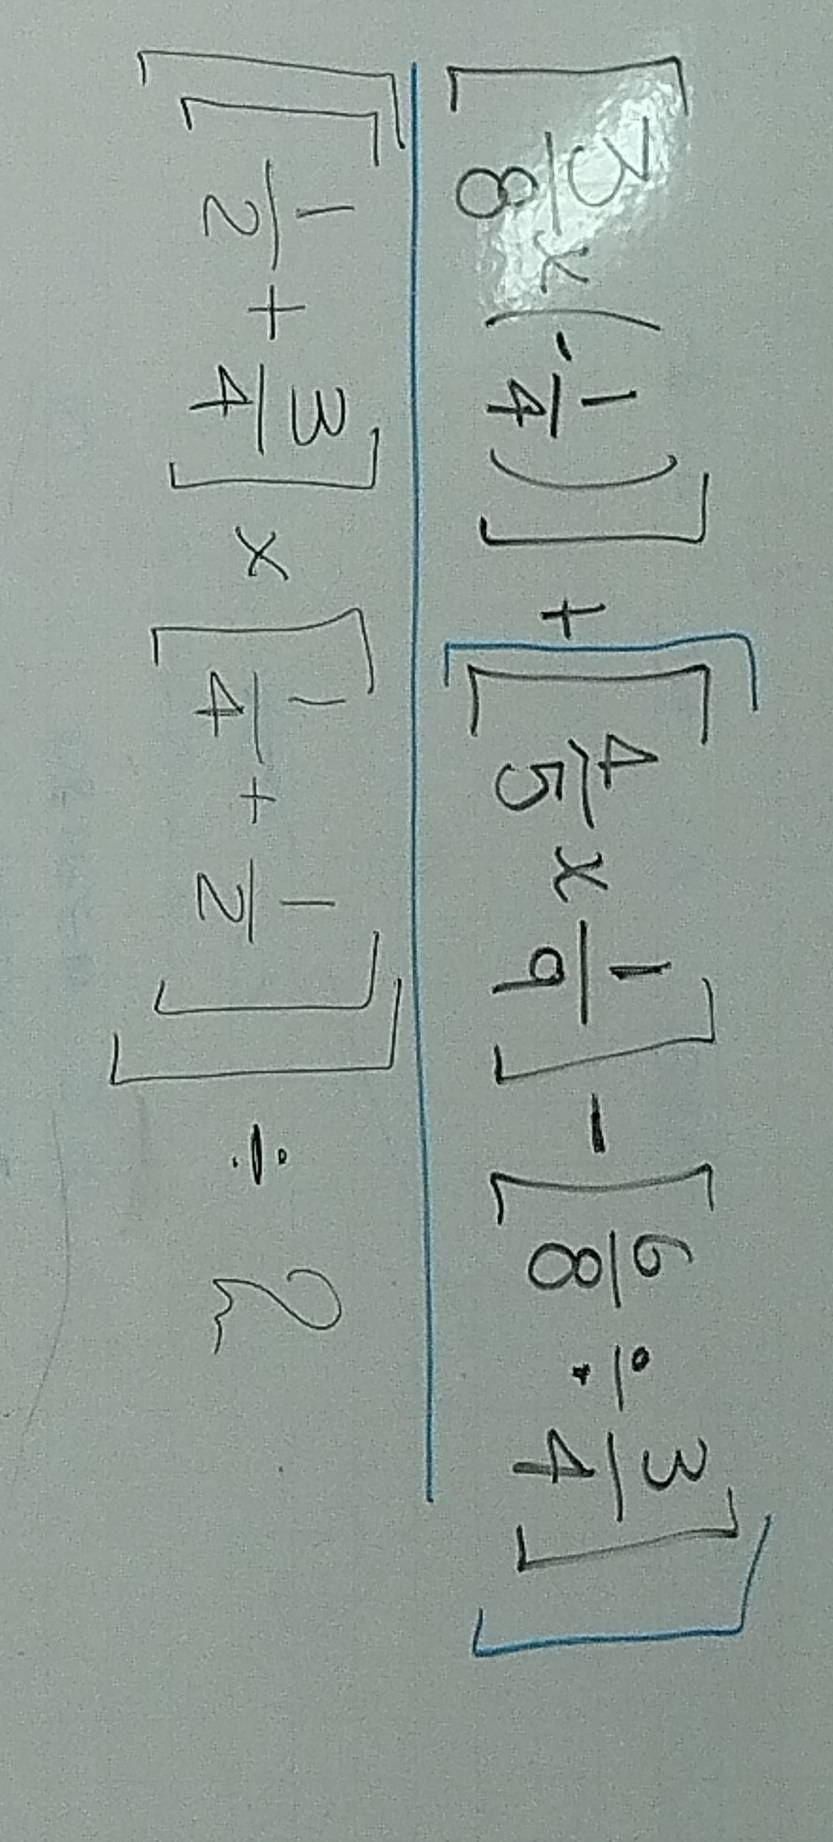 [3/8 × (-1/4)] + [[4/5 × 1/9] - [6/8 ÷ 3/4]]
[[1/2 + 3/4] × [1/4 + 1/2]] ÷ 2